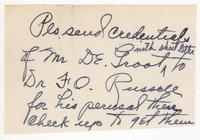 Pls send credentials
of Mr DE. Groot, to
with short letter
Dr F. O. Russell
for his perusal then
check up to get them